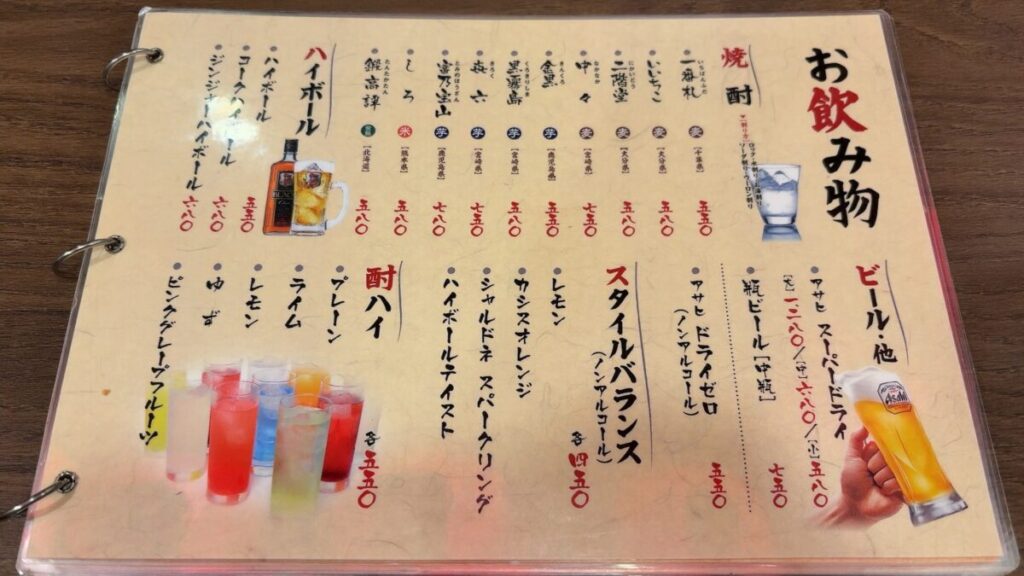 お飲み物
焼酎
一番札 麦 [千葉県] 五五〇
いいちこ 麦 [大分県] 五八〇
にかいどう
二階堂 麦 [大分県] 五八〇
なかなか
中々 麦 [宮崎県] 七五〇
きんくろ
金黒 芋 [鹿児島県] 五五〇
くろきりしま
黒霧島 芋 [宮崎県] 五八〇
きろく
㐂六 芋 [宮崎県] 七五〇
とみのほうざん
富乃宝山 芋 [鹿児島県] 七八〇
しろ 米 [熊本県] 五八〇
たんたかたん
鍛高譚 [北海道] 五八〇
ハイボール
ハイボール 五五〇
コークハイボール 六八〇
ジンジャーハイボール 六八〇
ビール・他
アサヒ スーパードライ
[大]一、二八〇/[中]六八〇/[小]五八〇
瓶ビール[中瓶] 七五〇
アサヒ ドライゼロ
(ノンアルコール) 五五〇
Asahi
スタイルバランス
(ノンアルコール) 各 四五〇
レモン
カシスオレンジ
シャルドネ スパークリング
ハイボールテイスト
酎ハイ 各 五五〇
プレーン
ライム
レモン
ゆず
ピンクグレープフルーツ